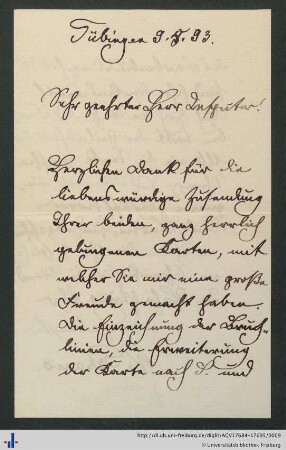 Tübingen 9. 7. 93.
Sehr geehrter Herr
Herzlichen Dank für die
liebenswürdige Zusendung
Ihrer beiden, ganz herrlich
gelungenen Karten, mit
welcher Sie mir eine große
Freude gemacht haben.
Die Einzeichnung der Bruch-
linien, die Erweiterung
der Karte nach S. und
http://dl.ub.uni-freiburg.de/diglit/ACV17684-17695/0009
© Universitätsbibliothek Freiburg